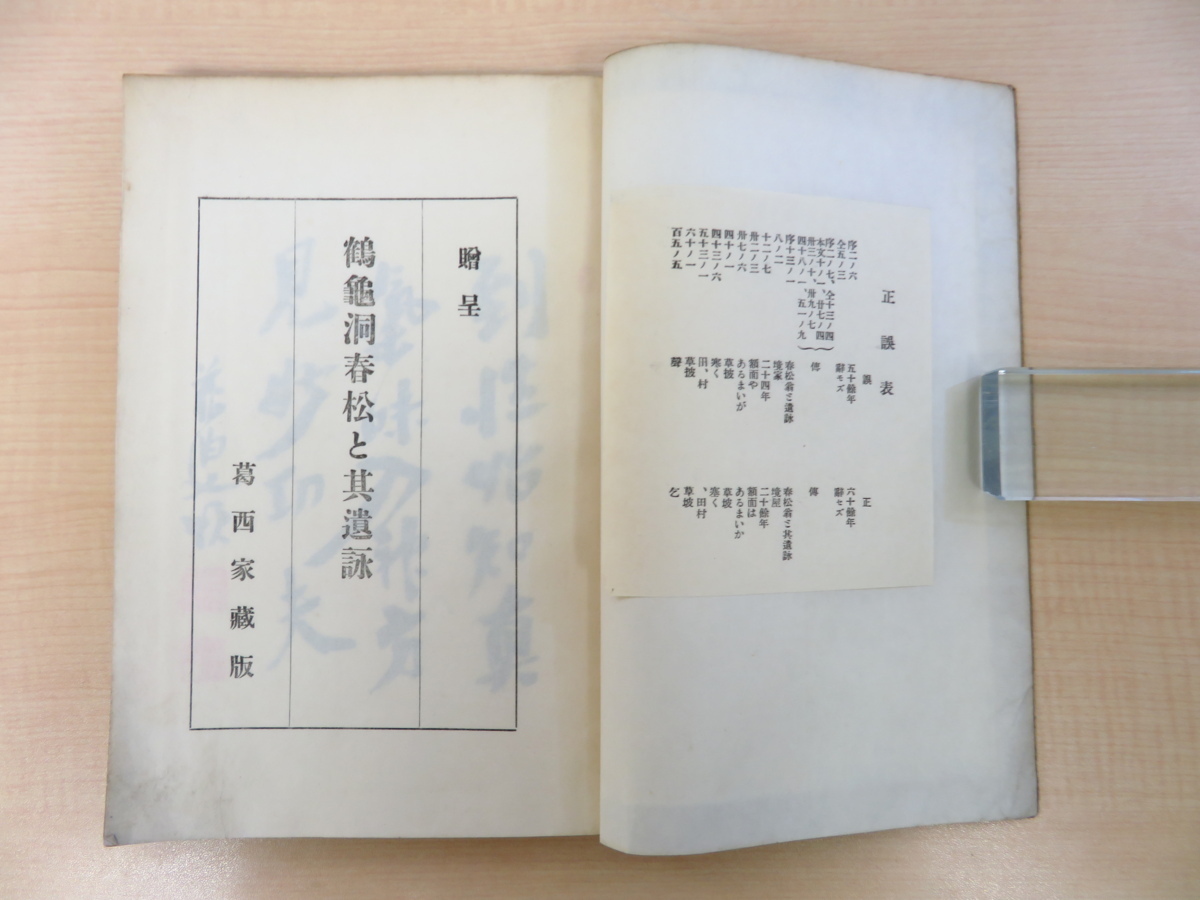 正誤表
誤
正
序二ノ六
五十餘年
六十餘年
仝五ノ三
辭モズ
辭セズ
序二ノ七、仝十三ノ四
本文十ノ一、廿七ノ四
卅三ノ十、卅九ノ七
四十八ノ一、五一ノ九
傳
傳
序十三ノ一
春松翁と遺詠
春松翁と其遺詠
八ノ二
境家
境屋
十二ノ七
二十四年
二十餘年
卅二ノ三
額面や
額面は
卅七ノ六
あるまいが
あるまいか
四十ノ一
草披
草坡
四十三ノ六
寒く
塞く
五十三ノ一
田、村
、田村
六十ノ一
草披
草坡
百五ノ五
聲
乞
贈呈
鶴龜洞春松と其遺詠
葛西家藏版